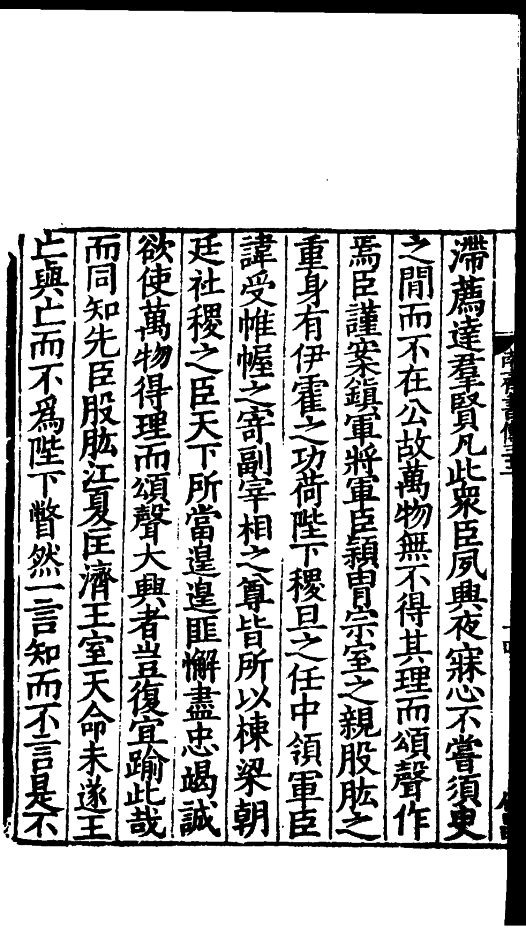 滯薦達羣賢凡此衆臣夙興夜寐心不嘗須臾
之間而不在公故萬物無不得其理而頌聲作
焉臣謹案鎮軍將軍臣穎胄宗室之親股肱之
重身有伊霍之功荷陛下稷旦之任中領軍臣
諱受帷幄之寄副宰相之尊皆所以棟梁朝
廷社稷之臣天下所當遑遑匪懈盡忠竭誠
欲使萬物得理而頌聲大興者豈復宜踰此哉
而同知先臣股肱江夏匡濟王室天命未遂王
亡與亡而不爲陛下瞥然一言知而不言是不